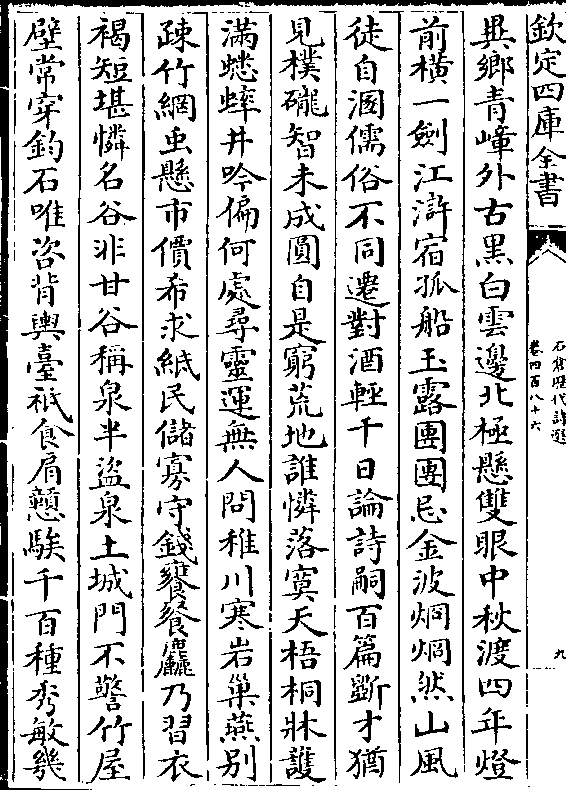 欽定四庫全書
石倉歴代詩選
卷四百八十六
九
異鄉青嶂外古黑白雲邊北極懸雙眼中秋渡四年燈
前横一劍江滸宿孤船玉露團團忌金波烱烱然山風
徒自溷儒俗不同遷對酒輕千日論詩嗣百篇斵才猶
見樸礲智未成圓自是窮荒地誰憐落寞天梧桐牀護
滿蟋蟀井吟偏何處尋靈運無人問稚川寒岩巢燕别
疎竹網虫懸市價希求紙民儲寡守錢饔飱麤乃習衣
褐短堪憐名谷非甘谷稱泉半盜泉土城門不警竹屋
壁常穿釣石唯咨背輿臺祗食肩戇騃千百種秀敏幾